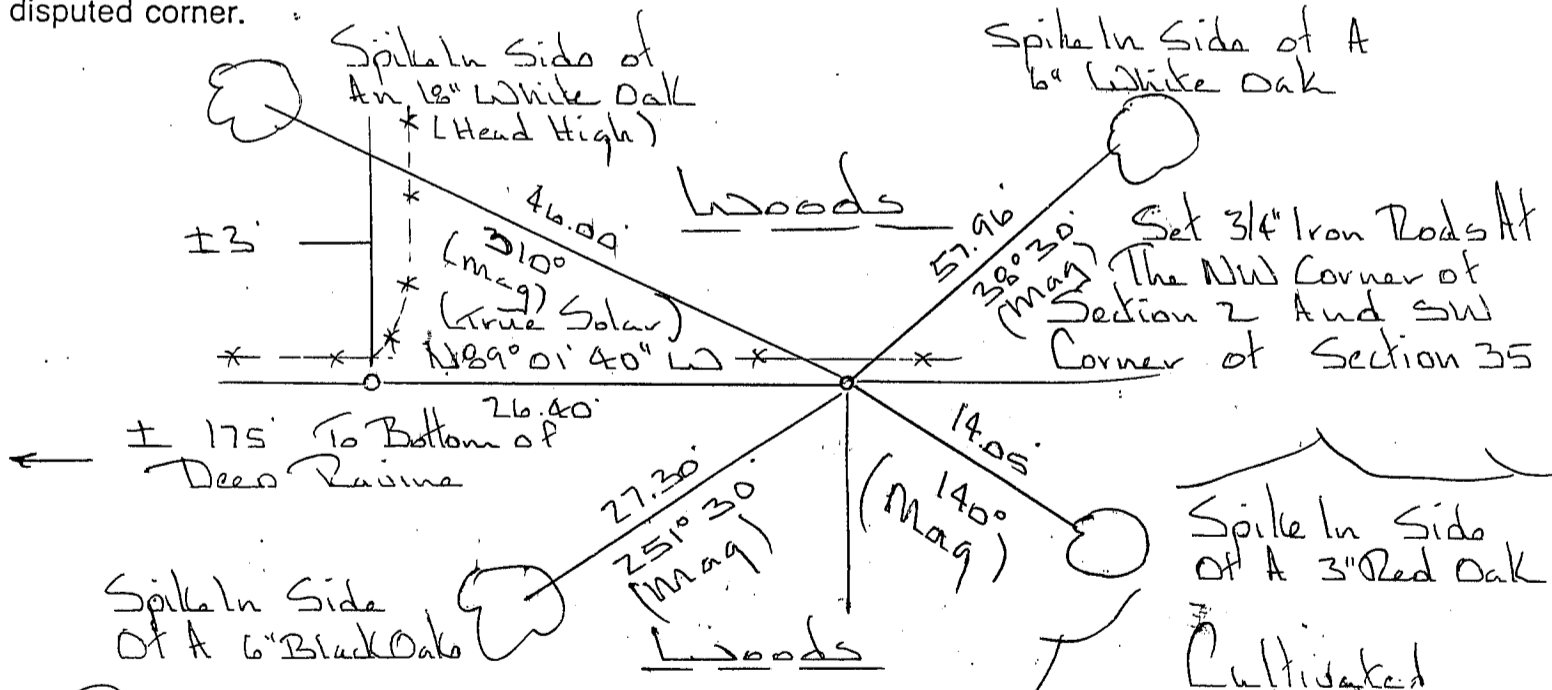 disputed corner.
Spike In Side of
An 18" White Oak
(Head High)
Spike In Side of A
6" White Oak
46.00'
310°
(Mag)
Woods
57.96'
38°30'
(Mag)
Set 3/4" Iron Rods At
The NW Corner of
Section 2 And SW
Corner of Section 35
±3'
(True Solar)
N89°01'40" W
26.40'
± 175' To Bottom of
Deep Ravine
27.30'
251°30'
(Mag)
14.05'
140°
(Mag)
Spike In Side
Of A 6" Black Oak
Woods
Spike In Side
Of A 3" Red Oak
Cultivated